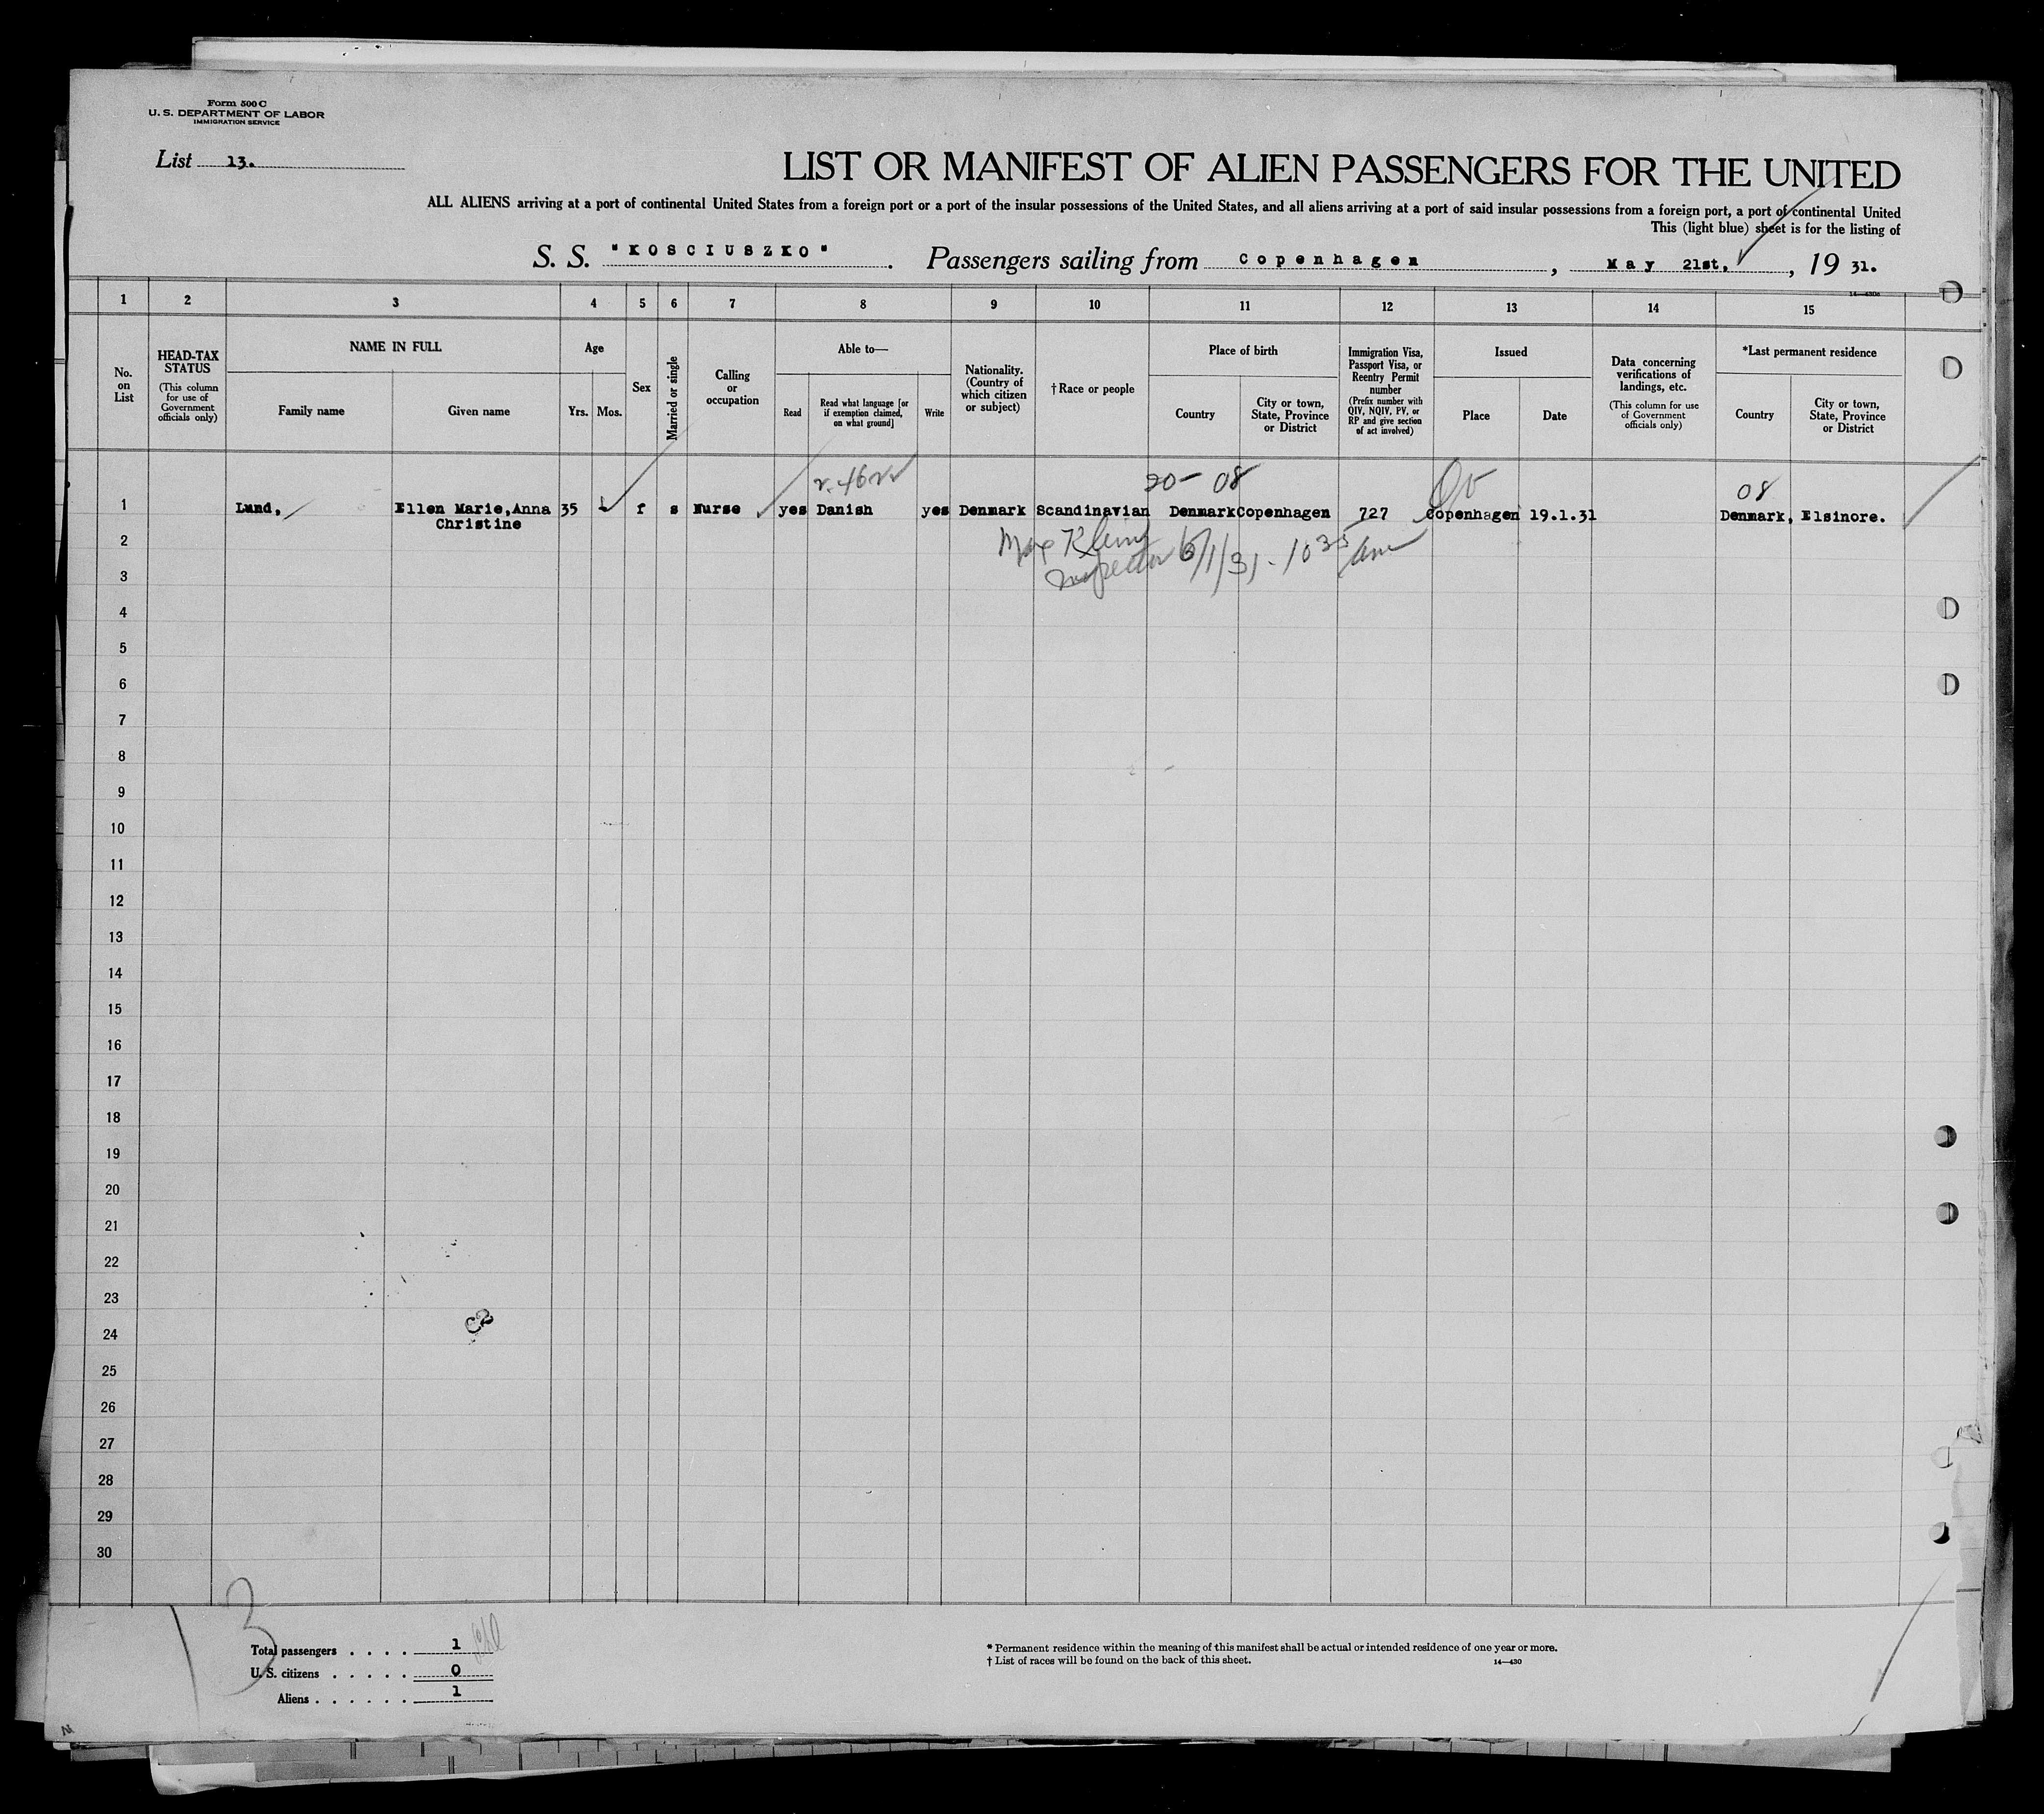 Form 500 C
U. S. DEPARTMENT OF LABOR
IMMIGRATION SERVICE
List 13.
LIST OR MANIFEST OF ALIEN PASSENGERS FOR THE UNITED
ALL ALIENS arriving at a port of continental United States from a foreign port or a port of the insular possessions of the United States, and all aliens arriving at a port of said insular possessions from a foreign port, a port of continental United
This (light blue) sheet is for the listing of
S. S. "KOSCIUSZKO". Passengers sailing from Copenhagen, May 21st, , 19 31.
1 2 3 4 5 6 7 8 9 10 11 12 13 14 15
No. on List
HEAD-TAX STATUS
(This column for use of Government officials only)
NAME IN FULL
Family name
Given name
Age
Yrs.
Mos.
Sex
Married or single
Calling or occupation
Able to—
Read
Read what language [or if exemption claimed, on what ground]
Write
Nationality. (Country of which citizen or subject)
†Race or people
Place of birth
Country
City or town, State, Province or District
Immigration Visa, Passport Visa, or Reentry Permit number
(Prefix number with QIV, NQIV, PV, or RP and give section of act involved)
Issued
Place
Date
Data concerning verifications of landings, etc.
(This column for use of Government officials only)
*Last permanent residence
Country
City or town, State, Province or District
20- 08
08
1 Lund, Ellen Marie,Anna 35 f s Nurse yes Danish yes Denmark Scandinavian Denmark Copenhagen 727 Copenhagen 19.1.31 Denmark, Elsinore.
Christine
2
Inspector 6/1/31 - 10 35 am
3
4
5
6
7
8
9
10
11
12
13
14
15
16
17
18
19
20
21
22
23
24
25
26
27
28
29
30
13
Total passengers . . . . 1
U. S. citizens . . . . . 0
Aliens . . . . . . 1
* Permanent residence within the meaning of this manifest shall be actual or intended residence of one year or more.
† List of races will be found on the back of this sheet.
14—430